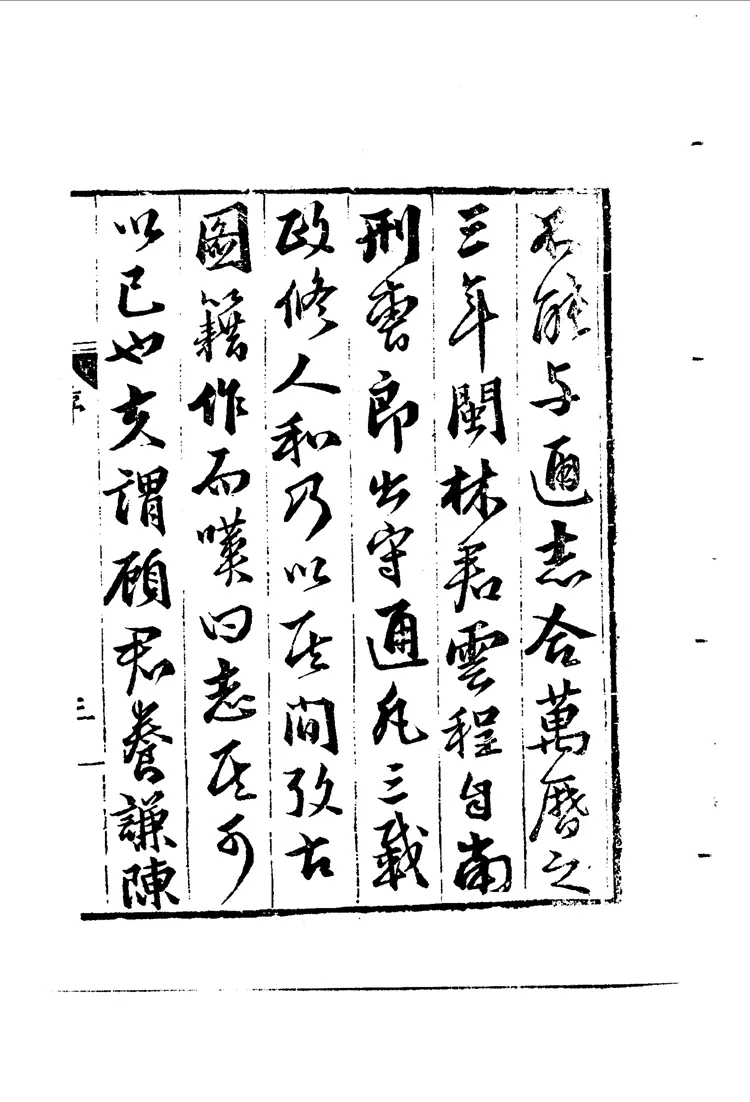 不能与通志合萬曆之
三年閩林君雲程自南
刑曹郎出守通凡三載
政修人和乃以其間攷古
圖籍作而嘆曰志其可
以已也亥謂顧君養謙陳
序
三